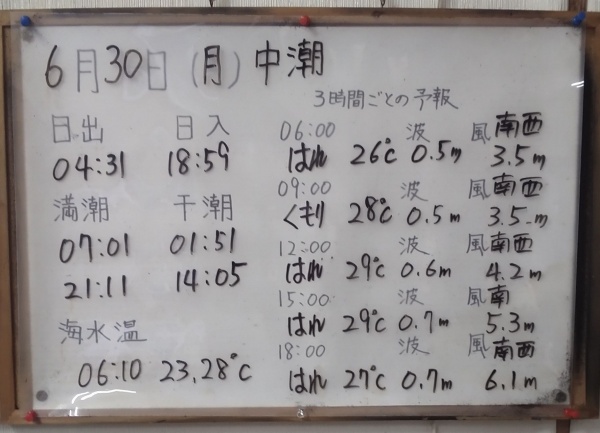 6月30日(月)中潮
日出 日入
04:31 18:59
満潮 干潮
07:01 01:51
21:11 14:05
海水温
06:10 23.28℃
3時間ごとの予報
06:00 波 風 南西
はれ 26℃ 0.5m 3.5m
09:00 波 風 南西
くもり 28℃ 0.5m 3.5m
12:00 波 風 南西
はれ 29℃ 0.6m 4.2m
15:00 波 風 南
はれ 29℃ 0.7m 5.3m
18:00 波 風 南西
はれ 27℃ 0.7m 6.1m